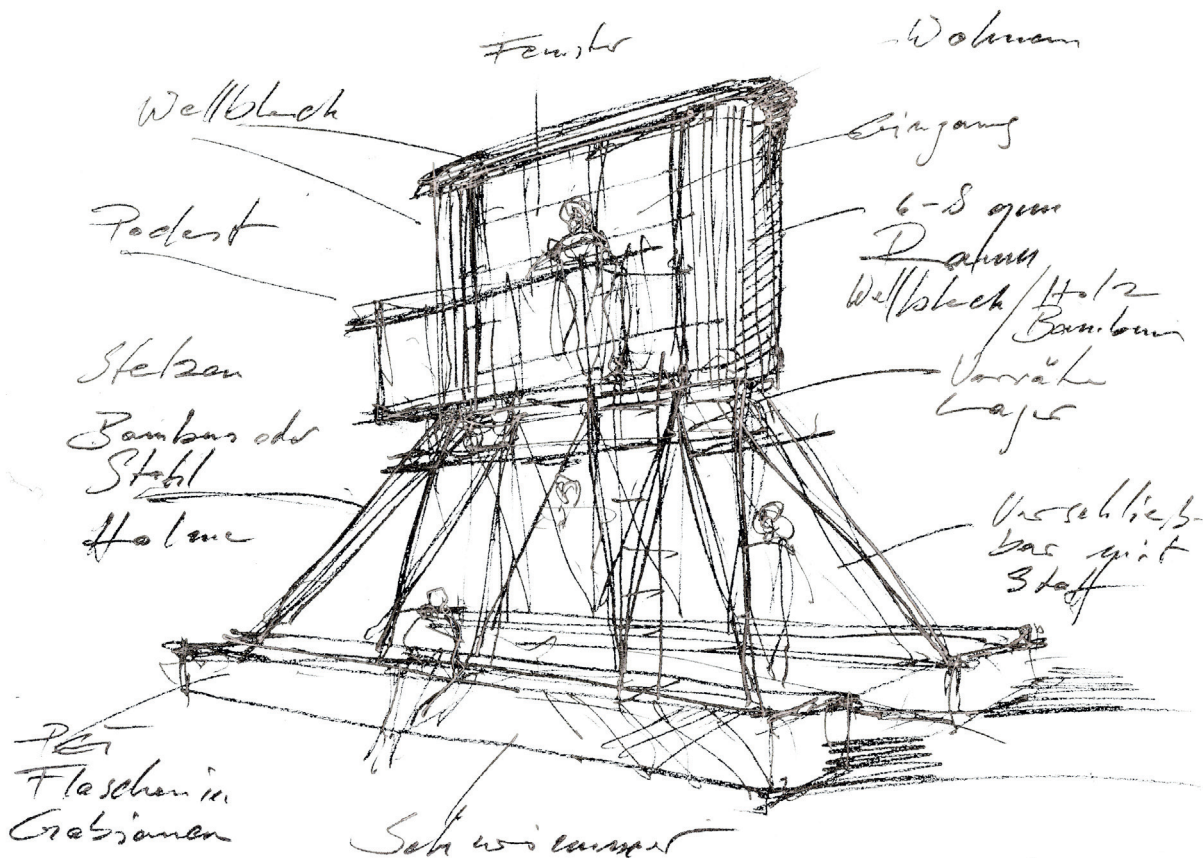 Fenster
Wohnen
Wellblech
Eingang
Podest
6-8 qm
Raum
Wellblech/Holz
Bambus
Stelzen
Bambus oder
Stahl
Holme
Vorräte
Lager
Verschließ-
bar mit
Stoff
PET
Flaschen in
Gabionen
Schwimmer